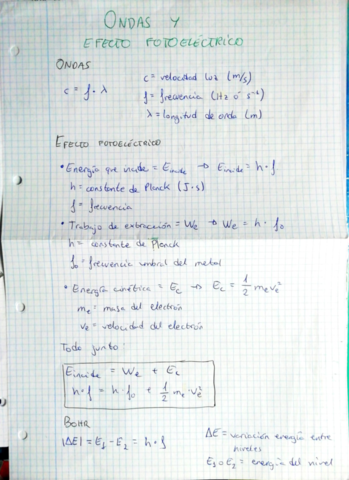 ONDAS Y
EFECTO FOTOELÉCTRICO
ONDAS
c = f · λ
c = velocidad luz (m/s)
f = frecuencia (Hz ó s⁻¹)
λ = longitud de onda (m)
EFECTO FOTOELÉCTRICO
• Energía que incide = Eincide → Eincide = h · f
h = constante de Planck (J·s)
f = frecuencia
• Trabajo de extracción = We → We = h · f₀
h = constante de Planck
f₀ = frecuencia umbral del metal
• Energía cinética = Ec → Ec = 1/2 me ve²
me = masa del electrón
ve = velocidad del electrón
Todo junto:
Eincide = We + Ec
h · f = h · f₀ + 1/2 me · ve²
BOHR
|ΔE| = E₁ - E₂ = h · f
ΔE = variación energía entre
niveles
E₁ o E₂ = energía del nivel